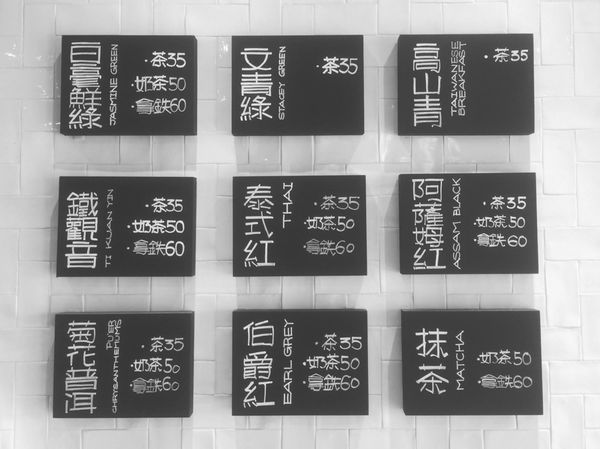 白毫鮮綠
JASMINE GREEN
·茶35
·奶茶50
·拿鉄60
文青綠
STAEY GREEN
·茶35
高山青
TAIWANESE
BREAKFAST
·茶35
鐵觀音
TI KUAN YIN
·茶35
·奶茶50
·拿鉄60
泰式紅
THAI
·茶35
·奶茶50
·拿鉄60
阿薩姆紅
ASSAM BLACK
·茶35
·奶茶50
·拿鉄60
菊花普洱
PU'ER
CHRYSANTHEMUMS
·茶35
·奶茶50
·拿鉄60
伯爵紅
EARL GREY
·茶35
·奶茶50
·拿鉄60
抹茶
MATCHA
·奶茶50
·拿鉄60